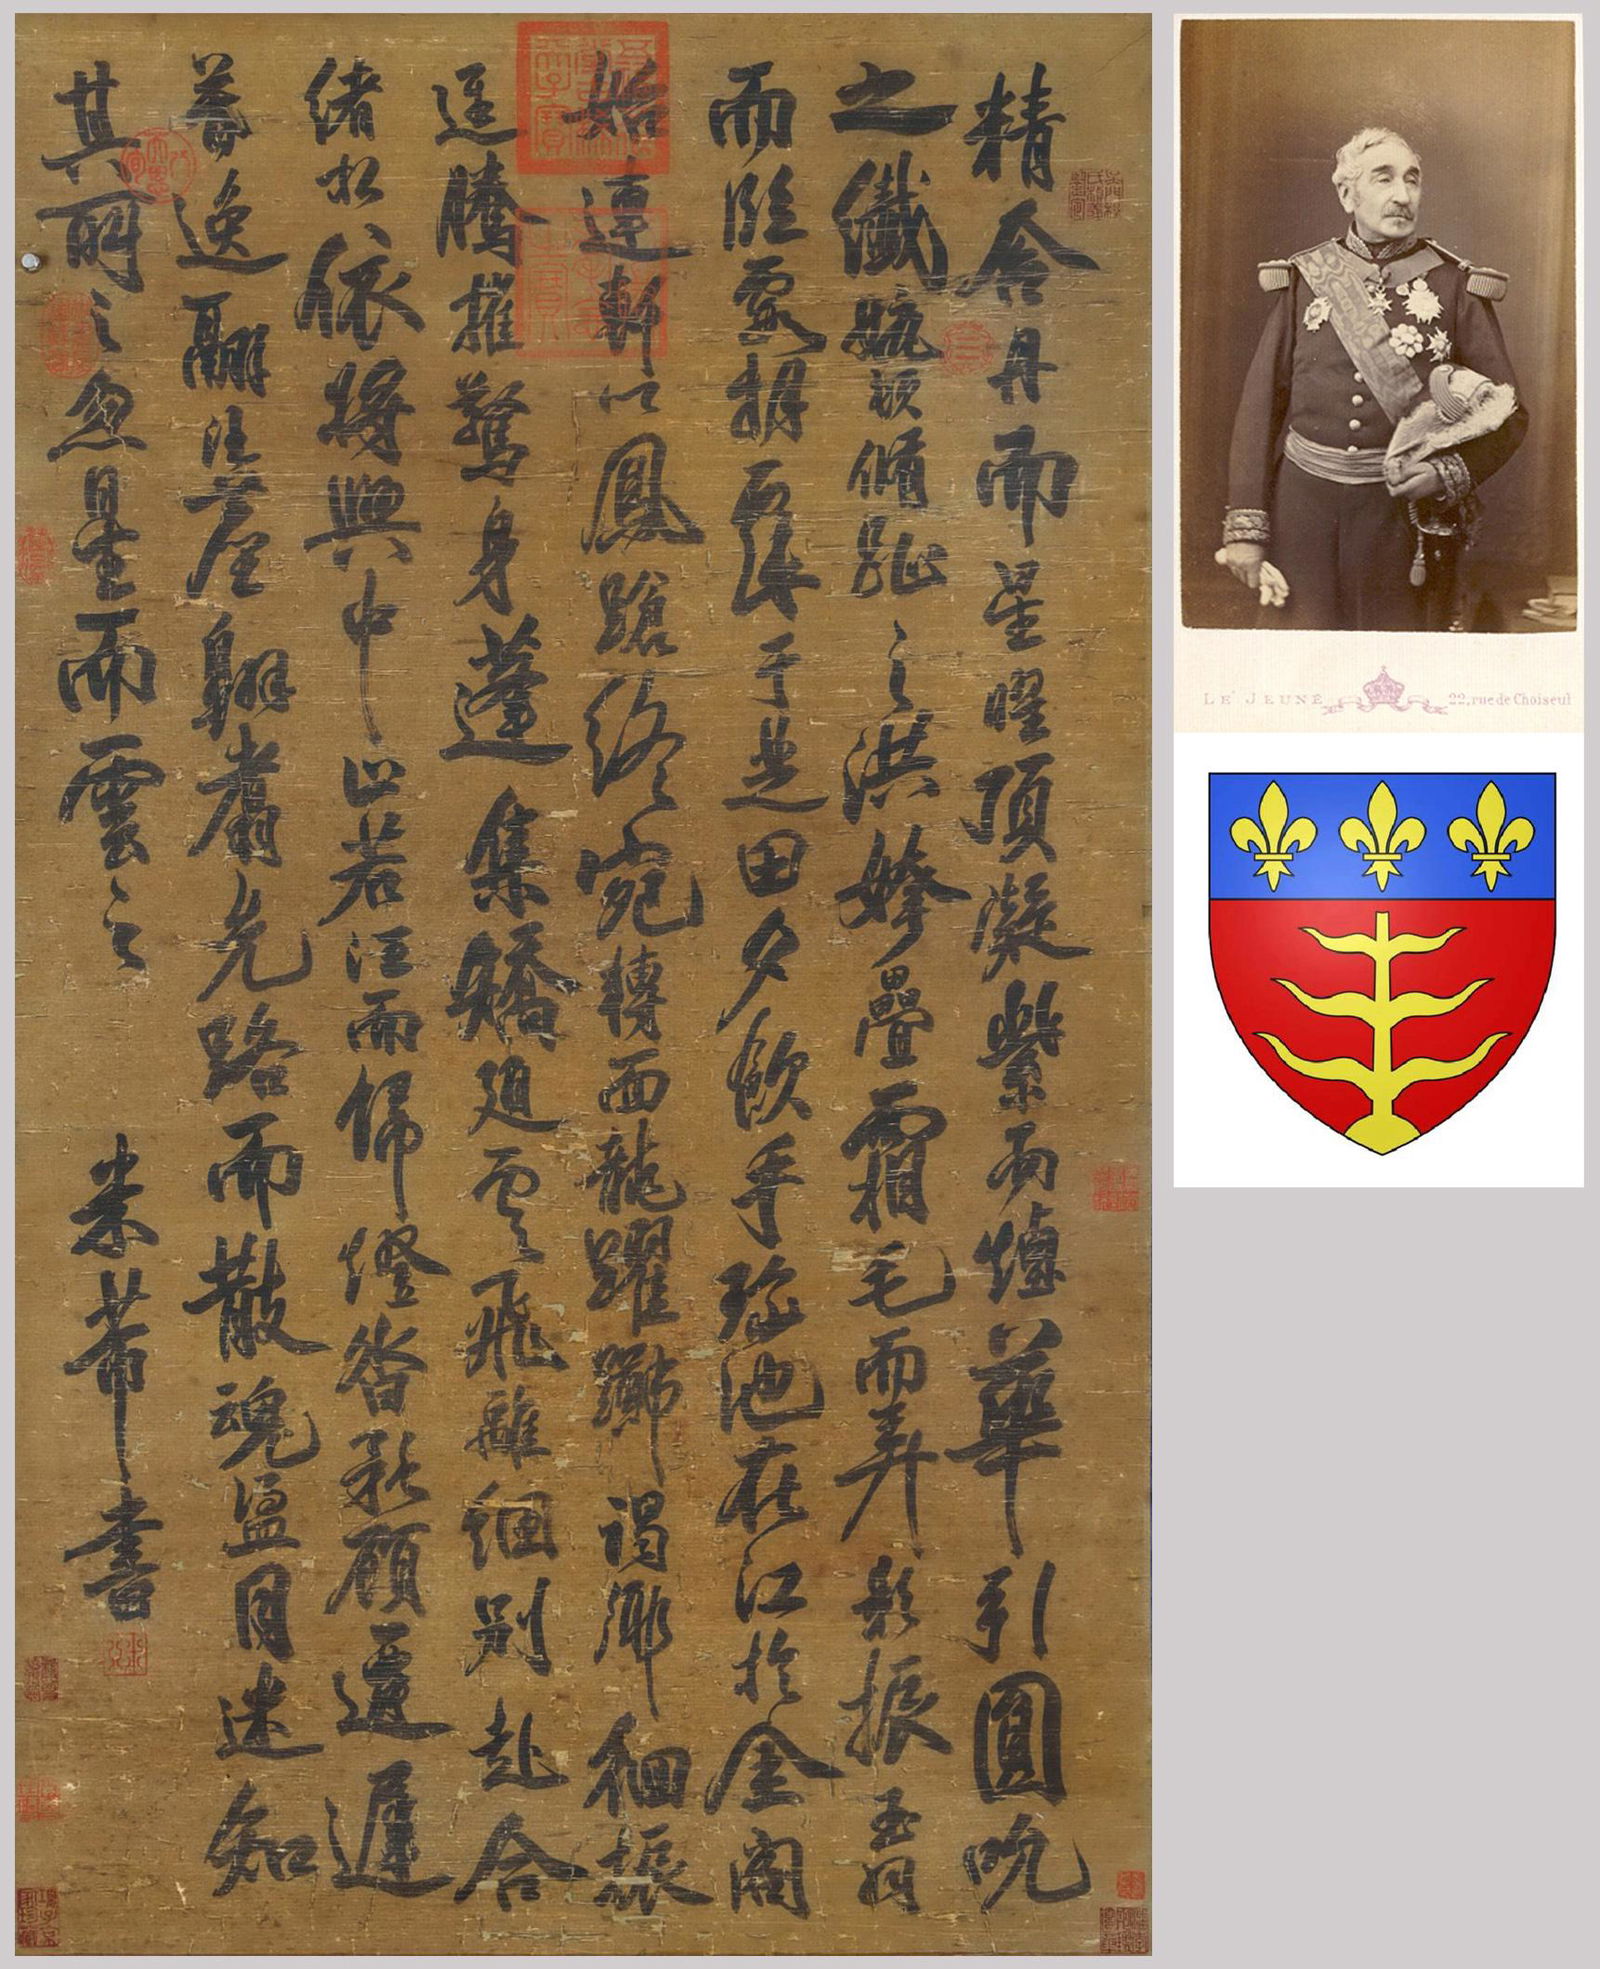 精含丹而星曜頂凝紫而烟華引圓吭
之纖婉頓脩趾之洪姱疊霜毛而弄影振玉羽
而臨霞朝戲于芝田夕飲乎瑤池在江於金閣
始連軒以鳳蹌終宛轉而龍躍躑躅徘徊振
迅騰摧驚身蓬集矯翅雪飛離綱別赴合
緒相依將興中止若往而歸颯沓矜顧遷遲
暮逸翮後塵翱翥先路而散魂盪目迷知
其所之忽星而雲之
米芾書
LE JEUNE 22, rue de Choiseul